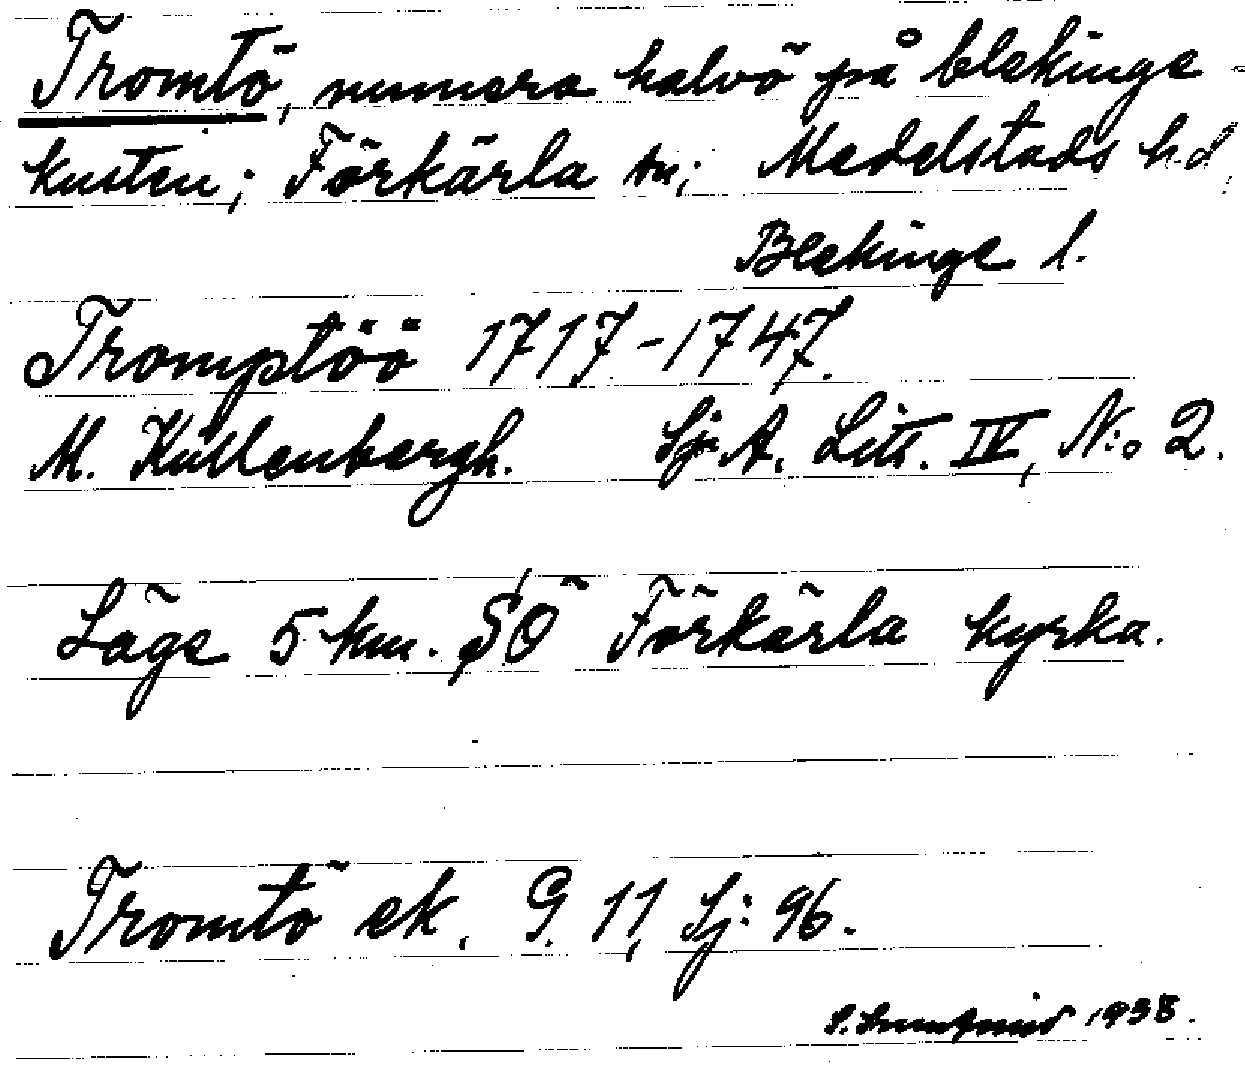 Tromtö, numera halvö på blekinge-
kusten; Förkärla sn; Medelstads hd,
Blekinge l.
Tromptöö 1717-1747.
M. Küllenbergh. Sj. A. Litt. IV, N:o 2.
Läge 5 km. SÖ Förkärla kyrka.
Tromtö ek. G. 11, Sj: 96.
1938.